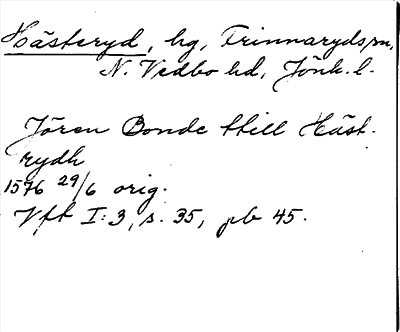 Hästeryd, hg, Frinnaryds sn,
N. Vedbo hd, Jönk. l.
Jören Bonde ttill Häst-
rydh
1576 29/6 orig.
Vfh I:3, s. 35, pb 45.